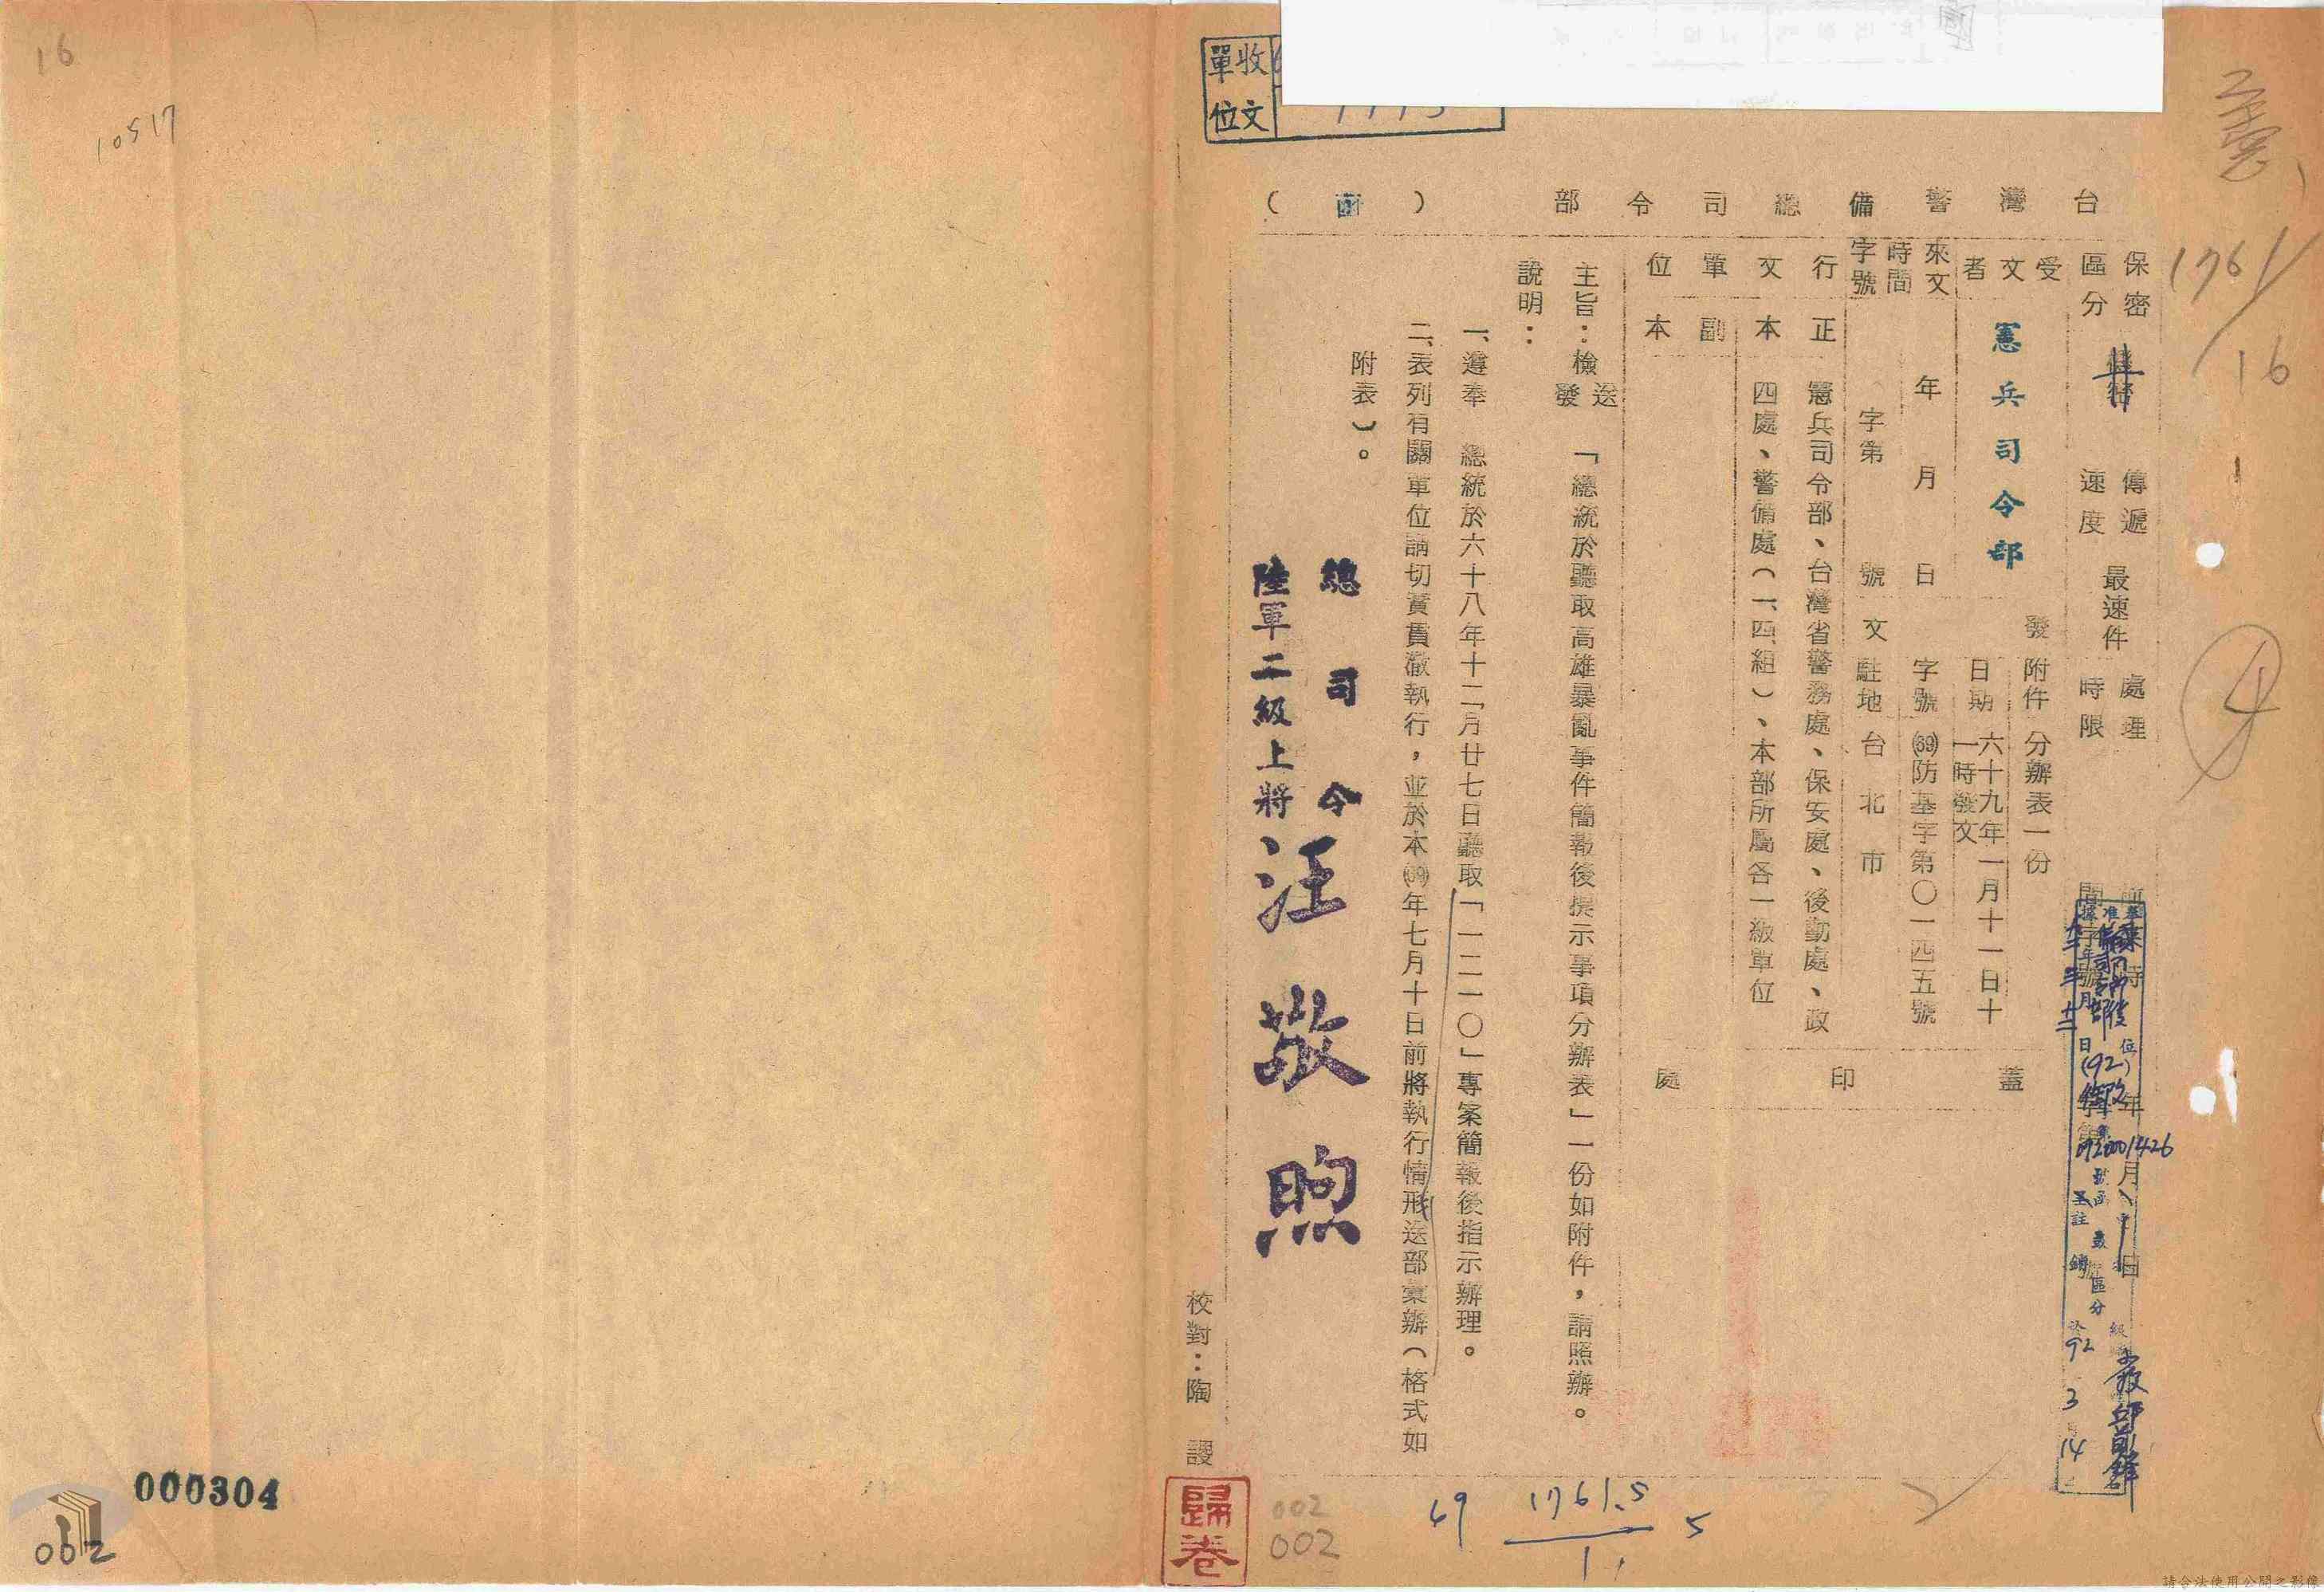 16
10517
000304
062
收文
單位
台灣警備總司令部(函)
保密區分
傳遞速度
最速件
處理時限
受文者
憲兵司令部
發
附件
分辦表一份
來文
時間
年 月 日
字號
字第 號
日期
六十九年一月十一日十一時發文
字號
(69)防基字第〇一四五號
文
駐地
台北市
行文單位
正本
憲兵司令部、台灣省警務處、保安處、後勤處、政
四處、警備處(一、四組)、本部所屬各一級單位
副本
蓋印處
主旨:檢送發「總統於聽取高雄暴亂事件簡報後提示事項分辦表」一份如附件,請照辦。
說明:
一、遵奉 總統於六十八年十二月廿七日聽取「一二一〇」專案簡報後指示辦理。
二、表列有關單位請切實貫徹執行,並於本(69)年七月十日前將執行情形送部彙辦(格式如
附表)。
總司令
陸軍二級上將 汪敬煦
校對:陶
歸卷
002
002
69
1761.5
11
5
1761/16
4
(92)
註銷
92 3 14
請合法使用公開之影像